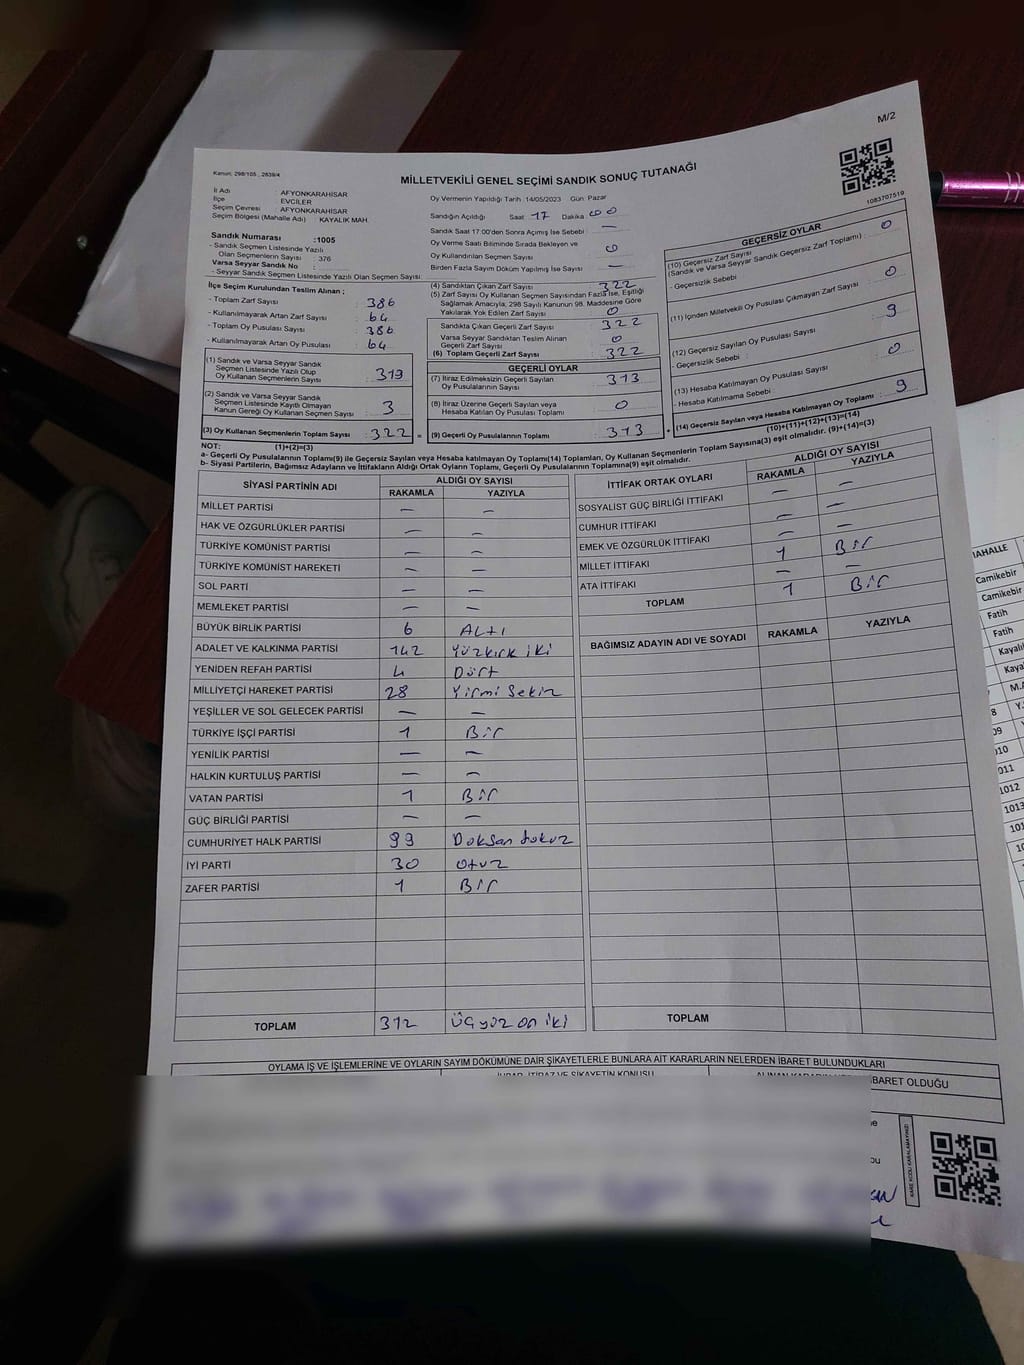 M/2
Kanun; 298/105 , 2839/4
MİLLETVEKİLİ GENEL SEÇİMİ SANDIK SONUÇ TUTANAĞI
1083707519
İl Adı : AFYONKARAHİSAR
İlçe : EVCİLER
Seçim Çevresi : AFYONKARAHİSAR
Seçim Bölgesi (Mahalle Adı) : KAYALIK MAH.
Sandık Numarası :1005
- Sandık Seçmen Listesinde Yazılı
Olan Seçmenlerin Sayısı : 376
Varsa Seyyar Sandık No :
- Seyyar Sandık Seçmen Listesinde Yazılı Olan Seçmen Sayısı
İlçe Seçim Kurulundan Teslim Alınan ;
- Toplam Zarf Sayısı : 386
- Kullanılmayarak Artan Zarf Sayısı : 64
- Toplam Oy Pusulası Sayısı : 386
- Kullanılmayarak Artan Oy Pusulası : 64
(1) Sandık ve Varsa Seyyar Sandık
Seçmen Listesinde Yazılı Olup
Oy Kullanan Seçmenlerin Sayısı : 319
(2) Sandık ve Varsa Seyyar Sandık
Seçmen Listesinde Kayıtlı Olmayan
Kanun Gereği Oy Kullanan Seçmen Sayısı : 3
(3) Oy Kullanan Seçmenlerin Toplam Sayısı : 322 =
(1)+(2)=(3)
Oy Vermenin Yapıldığı Tarih :14/05/2023 Gün: Pazar
Sandığın Açıldığı Saat: 17 Dakika: 00
Sandık Saat 17:00'den Sonra Açılmış İse Sebebi : —
Oy Verme Saati Bitiminde Sırada Bekleyen ve
Oy Kullandırılan Seçmen Sayısı : 0
Birden Fazla Sayım Döküm Yapılmış İse Sayısı : —
(4) Sandıktan Çıkan Zarf Sayısı : 322
(5) Zarf Sayısı Oy Kullanan Seçmen Sayısından Fazla İse, Eşitliği
Sağlamak Amacıyla, 298 Sayılı Kanunun 98. Maddesine Göre
Yakılarak Yok Edilen Zarf Sayısı : 0
Sandıkta Çıkan Geçerli Zarf Sayısı : 322
Varsa Seyyar Sandıktan Teslim Alınan
Geçerli Zarf Sayısı : 0
(6) Toplam Geçerli Zarf Sayısı : 322
GEÇERLİ OYLAR
(7) İtiraz Edilmeksizin Geçerli Sayılan
Oy Pusulalarının Sayısı : 313
(8) İtiraz Üzerine Geçerli Sayılan veya
Hesaba Katılan Oy Pusulası Toplamı : 0
(9) Geçerli Oy Pusulalarının Toplamı : 313 +
GEÇERSİZ OYLAR
(10) Geçersiz Zarf Sayısı
(Sandık ve Varsa Seyyar Sandık Geçersiz Zarf Toplamı) : 0
- Geçersizlik Sebebi :
(11) İçinden Milletvekili Oy Pusulası Çıkmayan Zarf Sayısı : 0
(12) Geçersiz Sayılan Oy Pusulası Sayısı : 9
- Geçersizlik Sebebi :
(13) Hesaba Katılmayan Oy Pusulası Sayısı : 0
- Hesaba Katılmama Sebebi :
(14) Geçersiz Sayılan veya Hesaba Katılmayan Oy Toplamı : 9
(10)+(11)+(12)+(13)=(14)
NOT:
a- Geçerli Oy Pusulalarının Toplamı(9) ile Geçersiz Sayılan veya Hesaba katılmayan Oy Toplamı(14) Toplamları, Oy Kullanan Seçmenlerin Toplam Sayısına(3) eşit olmalıdır. (9)+(14)=(3)
b- Siyasi Partilerin, Bağımsız Adayların ve İttifakların Aldığı Ortak Oyların Toplamı, Geçerli Oy Pusulalarının Toplamına(9) eşit olmalıdır.
SİYASİ PARTİNİN ADI ALDIĞI OY SAYISI
RAKAMLA YAZIYLA
MİLLET PARTİSİ — —
HAK VE ÖZGÜRLÜKLER PARTİSİ — —
TÜRKİYE KOMÜNİST PARTİSİ — —
TÜRKİYE KOMÜNİST HAREKETİ — —
SOL PARTİ — —
MEMLEKET PARTİSİ — —
BÜYÜK BİRLİK PARTİSİ 6 Altı
ADALET VE KALKINMA PARTİSİ 142 Yüzkırk iki
YENİDEN REFAH PARTİSİ 4 Dört
MİLLİYETÇİ HAREKET PARTİSİ 28 Yirmi Sekiz
YEŞİLLER VE SOL GELECEK PARTİSİ — —
TÜRKİYE İŞÇİ PARTİSİ 1 Bir
YENİLİK PARTİSİ — —
HALKIN KURTULUŞ PARTİSİ — —
VATAN PARTİSİ 1 Bir
GÜÇ BİRLİĞİ PARTİSİ — —
CUMHURİYET HALK PARTİSİ 99 Doksan dokuz
İYİ PARTİ 30 Otuz
ZAFER PARTİSİ 1 Bir
TOPLAM 312 Üçyüz on iki
İTTİFAK ORTAK OYLARI ALDIĞI OY SAYISI
RAKAMLA YAZIYLA
SOSYALİST GÜÇ BİRLİĞİ İTTİFAKI — —
CUMHUR İTTİFAKI — —
EMEK VE ÖZGÜRLÜK İTTİFAKI — —
MİLLET İTTİFAKI 1 Bir
ATA İTTİFAKI — —
TOPLAM 1 Bir
BAĞIMSIZ ADAYIN ADI VE SOYADI RAKAMLA YAZIYLA
TOPLAM
OYLAMA İŞ VE İŞLEMLERİNE VE OYLARIN SAYIM DÖKÜMÜNE DAİR ŞİKAYETLERLE BUNLARA AİT KARARLARIN NELERDEN İBARET BULUNDUKLARI
İHBAR, İTİRAZ VE ŞİKAYETİN KONUSU
İBARET OLDUĞU
KARE KODU KARALAMAYINIZ!
MAHALLE
Camikebir
Camikebir
Fatih
Fatih
Kayalı
Kaya
M.A
1012
1013